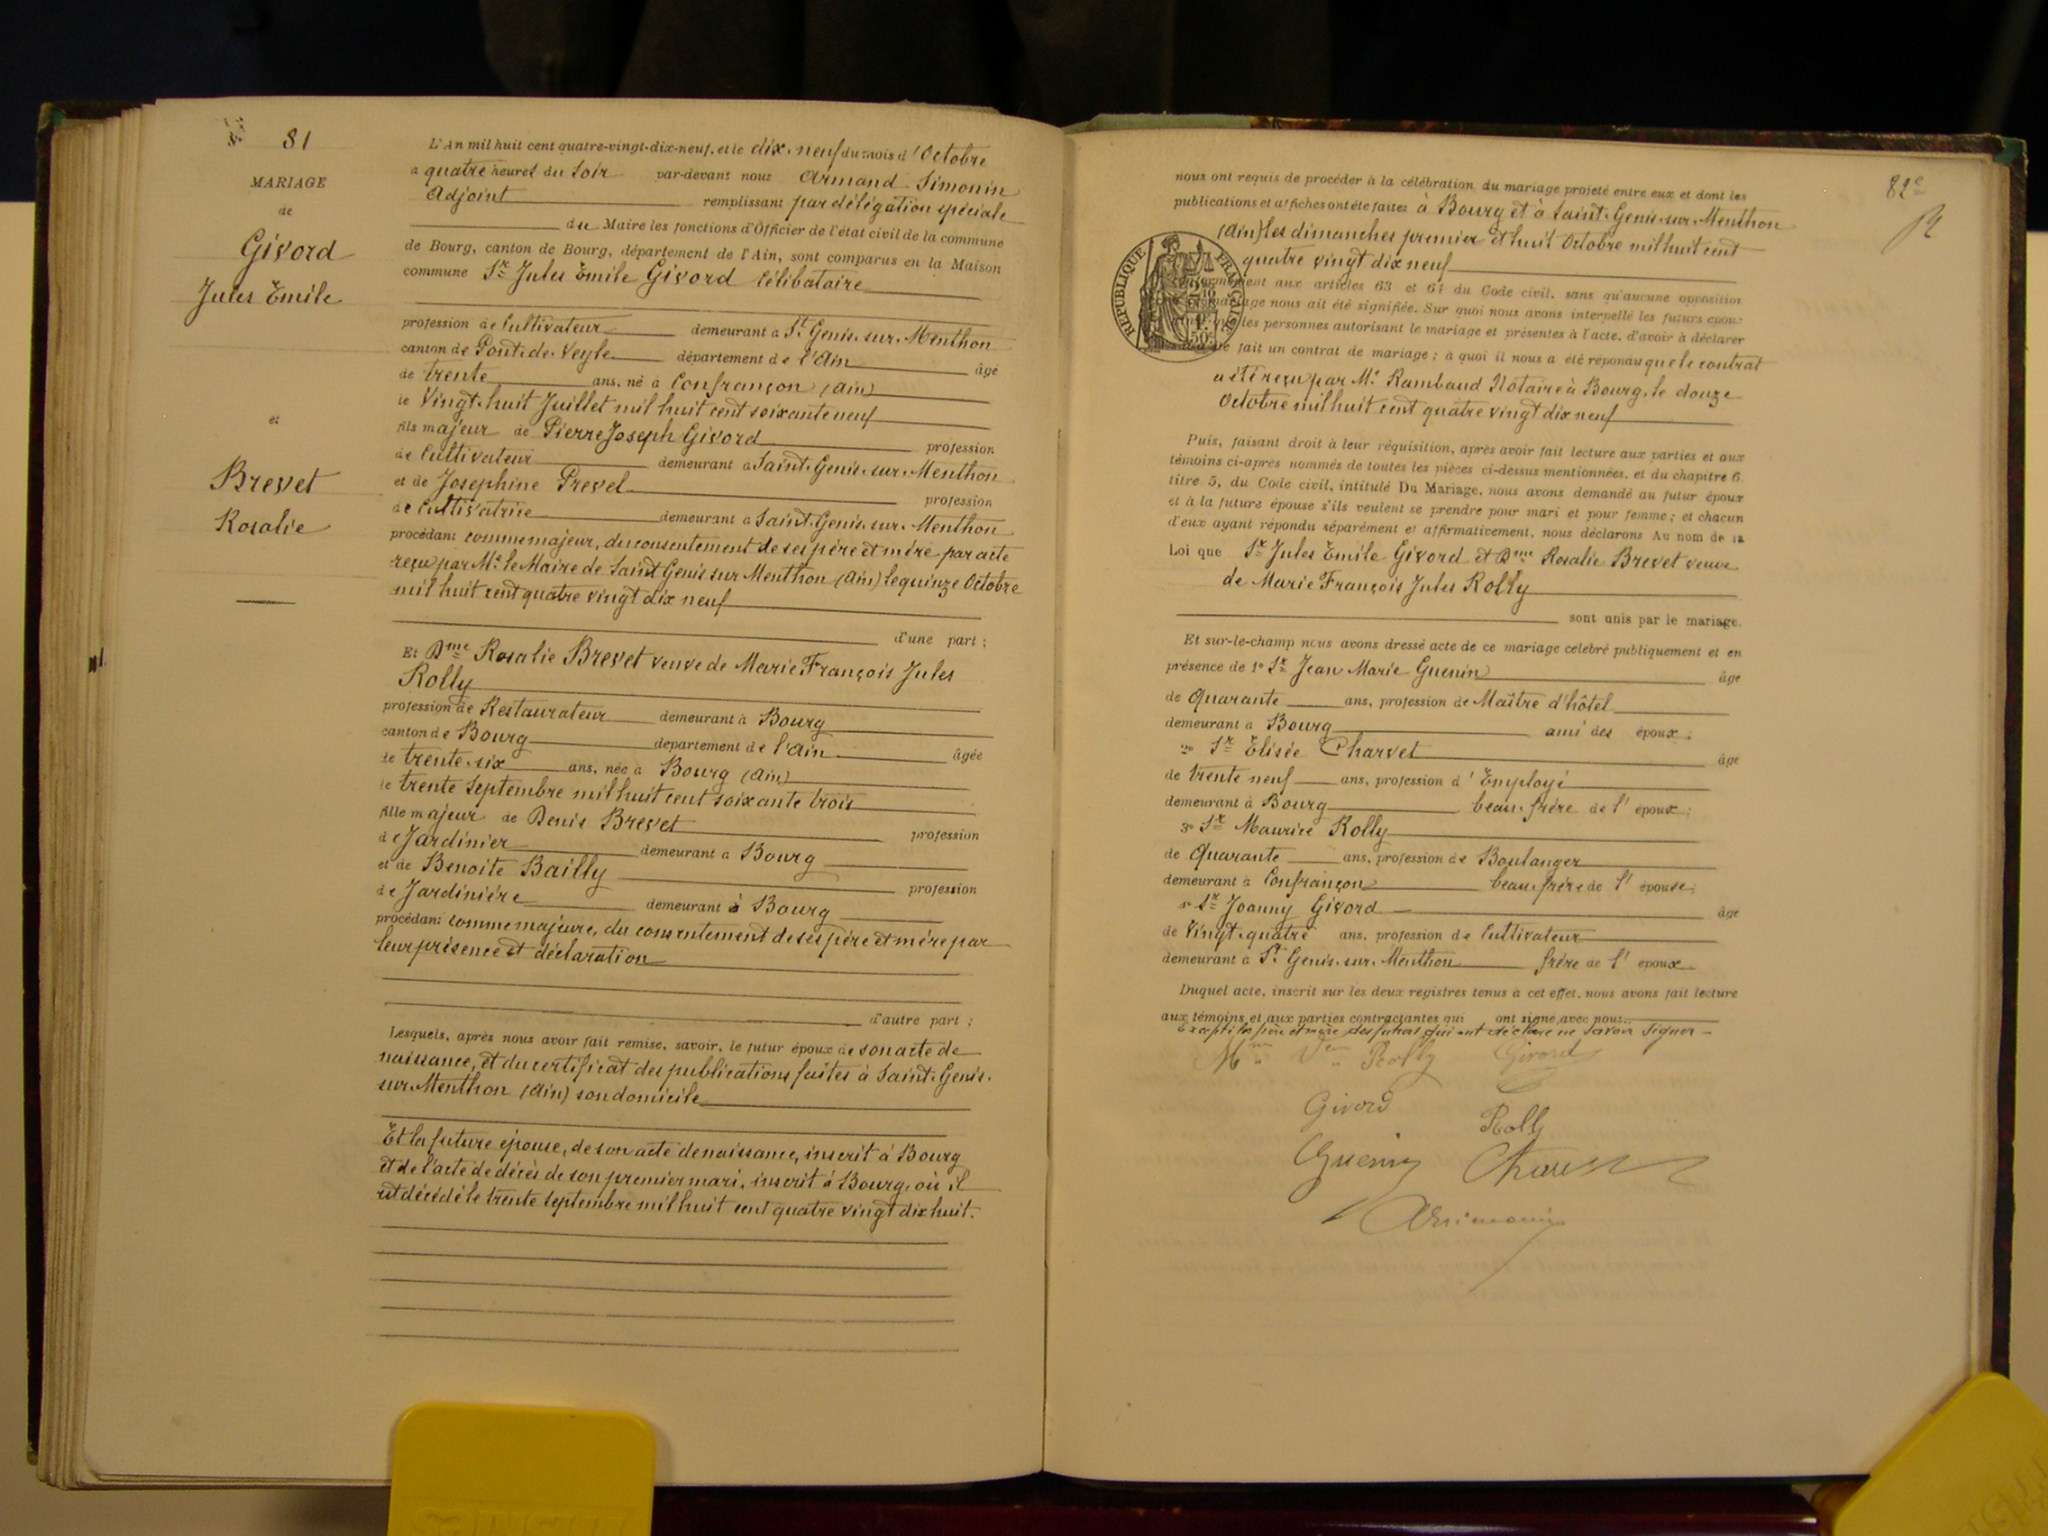 N° 81
MARIAGE
de
Givord
Jules Emile
et
Brevet
Rosalie
L'An mil huit cent quatre-vingt-dix-neuf, et le dix-neuf du mois d'Octobre
a quatre heures du Soir par-devant nous Armand Simonin
Adjoint remplissant par délégation spéciale
du Maire les fonctions d'Officier de l'état civil de la commune
de Bourg, canton de Bourg, département de l'Ain, sont comparus en la Maison
commune Sr Jules Emile Givord Célibataire
profession de Cultivateur demeurant à St Genis-sur-Menthon
canton de Pont-de-Veyle département de l'Ain âgé
de trente ans, né à Confrançon (Ain)
le Vingt-huit Juillet mil huit cent soixante neuf
fils majeur de Pierre Joseph Givord profession
de Cultivateur demeurant à Saint-Genis-sur-Menthon
et de Josephine Prevel profession
de Cultivatrice demeurant à Saint-Genis-sur-Menthon
procédant comme majeur, du consentement de ses père et mère par acte
reçu par Mr le Maire de Saint Genis sur Menthon (Ain) le quinze Octobre
mil huit cent quatre vingt dix neuf
d'une part ;
Et Dme Rosalie Brevet veuve de Marie François Jules
Rolly
profession de Restaurateur demeurant à Bourg
canton de Bourg département de l'Ain âgée
de trente-six ans, née à Bourg (Ain)
le trente Septembre mil huit cent soixante trois
fille majeur de Denis Brevet profession
de Jardinier demeurant à Bourg
et de Benoite Bailly profession
de Jardinière demeurant à Bourg
procédant comme majeure, du consentement de ses père et mère par
leur présence et déclaration
d'autre part ;
Lesquels, après nous avoir fait remise, savoir, le futur époux de son acte de
naissance, et du certificat des publications faites à Saint-Genis-
sur-Menthon (Ain) son domicile
Et la future épouse, de son acte de naissance, inscrit à Bourg
et de l'acte de décès de son premier mari, inscrit à Bourg, où il
est décédé le trente Septembre mil huit cent quatre vingt dix huit.
82e
nous ont requis de procéder à la célébration du mariage projeté entre eux et dont les
publications et affiches ont été faites à Bourg et à Saint-Genis-sur-Menthon
(Ain) les dimanches premier et huit Octobre mil huit cent
quatre vingt dix neuf
REPUBLIQUE FRANÇAISE
aux articles 63 et 64 du Code civil, sans qu'aucune opposition
nous ait été signifiée. Sur quoi nous avons interpellé les futurs époux
les personnes autorisant le mariage et présentes à l'acte, d'avoir à déclarer
fait un contrat de mariage ; à quoi il nous a été répondu que le contrat
a été reçu par Me Rambaud Notaire à Bourg, le douze
Octobre mil huit cent quatre vingt dix neuf
Puis, faisant droit à leur réquisition, après avoir fait lecture aux parties et aux
témoins ci-après nommés de toutes les pièces ci-dessus mentionnées, et du chapitre 6
titre 5, du Code civil, intitulé Du Mariage, nous avons demandé au futur époux
et à la future épouse s'ils veulent se prendre pour mari et pour femme ; et chacun
d'eux ayant répondu séparément et affirmativement, nous déclarons Au nom de la
Loi que Sr Jules Emile Givord et Dme Rosalie Brevet veuve
de Marie François Jules Rolly
sont unis par le mariage.
Et sur-le-champ nous avons dressé acte de ce mariage célébré publiquement et en
présence de 1° Sr Jean Marie Guenin âgé
de Quarante ans, profession de Maître d'hôtel
demeurant à Bourg ami des époux ;
2° Sr Elisée Charvet âgé
de trente neuf ans, profession d'Employé
demeurant à Bourg beau-frère de l'époux ;
3° Sr Maurice Rolly
de Quarante ans, profession de Boulanger
demeurant à Confrançon beau-frère de l'épouse ;
Sr Joanny Givord âgé
de Vingt-quatre ans, profession de Cultivateur
demeurant à St Genis-sur-Menthon frère de l'époux
Duquel acte, inscrit sur les deux registres tenus à cet effet, nous avons fait lecture
aux témoins et aux parties contractantes qui ont signé avec nous
Excepté les père et mère des futurs qui ont déclaré ne savoir signer
Mme Vve Rolly Givord
Givord Rolly
Guenin Charvet
A Simonin